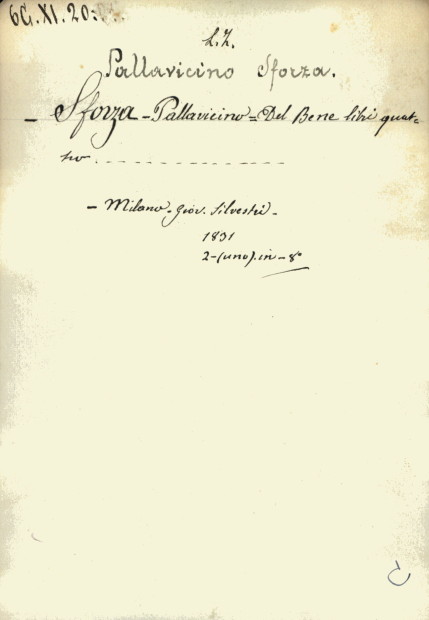 6G.XI.20:
L.Z.
Pallavicino Sforza.
- Sforza - Pallavicino = Del Bene libri quat=
tro.
- Milano - Giov. Silvestri -
1831
2-(uno). in - 8°